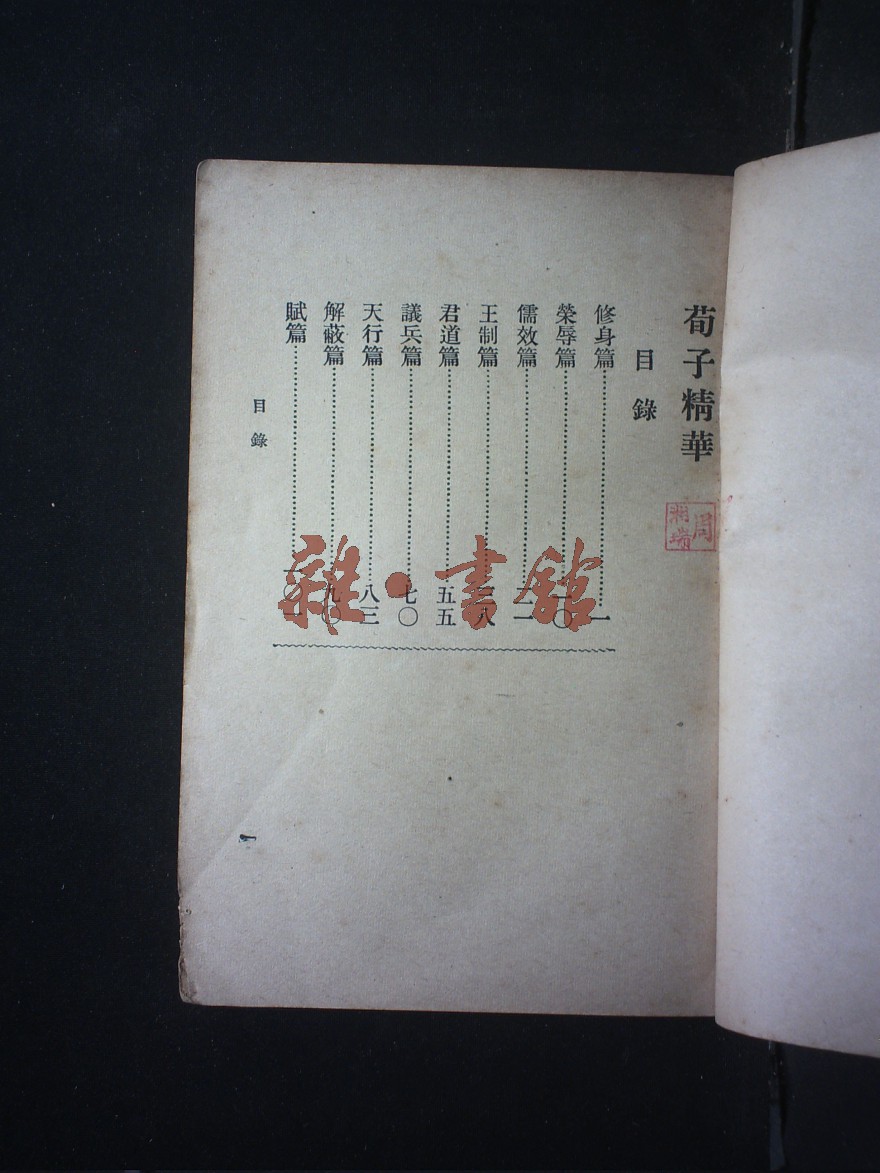 荀子精華
目錄
修身篇……一
榮辱篇……一〇
儒效篇……二二
王制篇……三八
君道篇……五五
議兵篇……七〇
天行篇……八三
解蔽篇……九〇
賦篇……一〇一
目錄
一
周
雜·書館